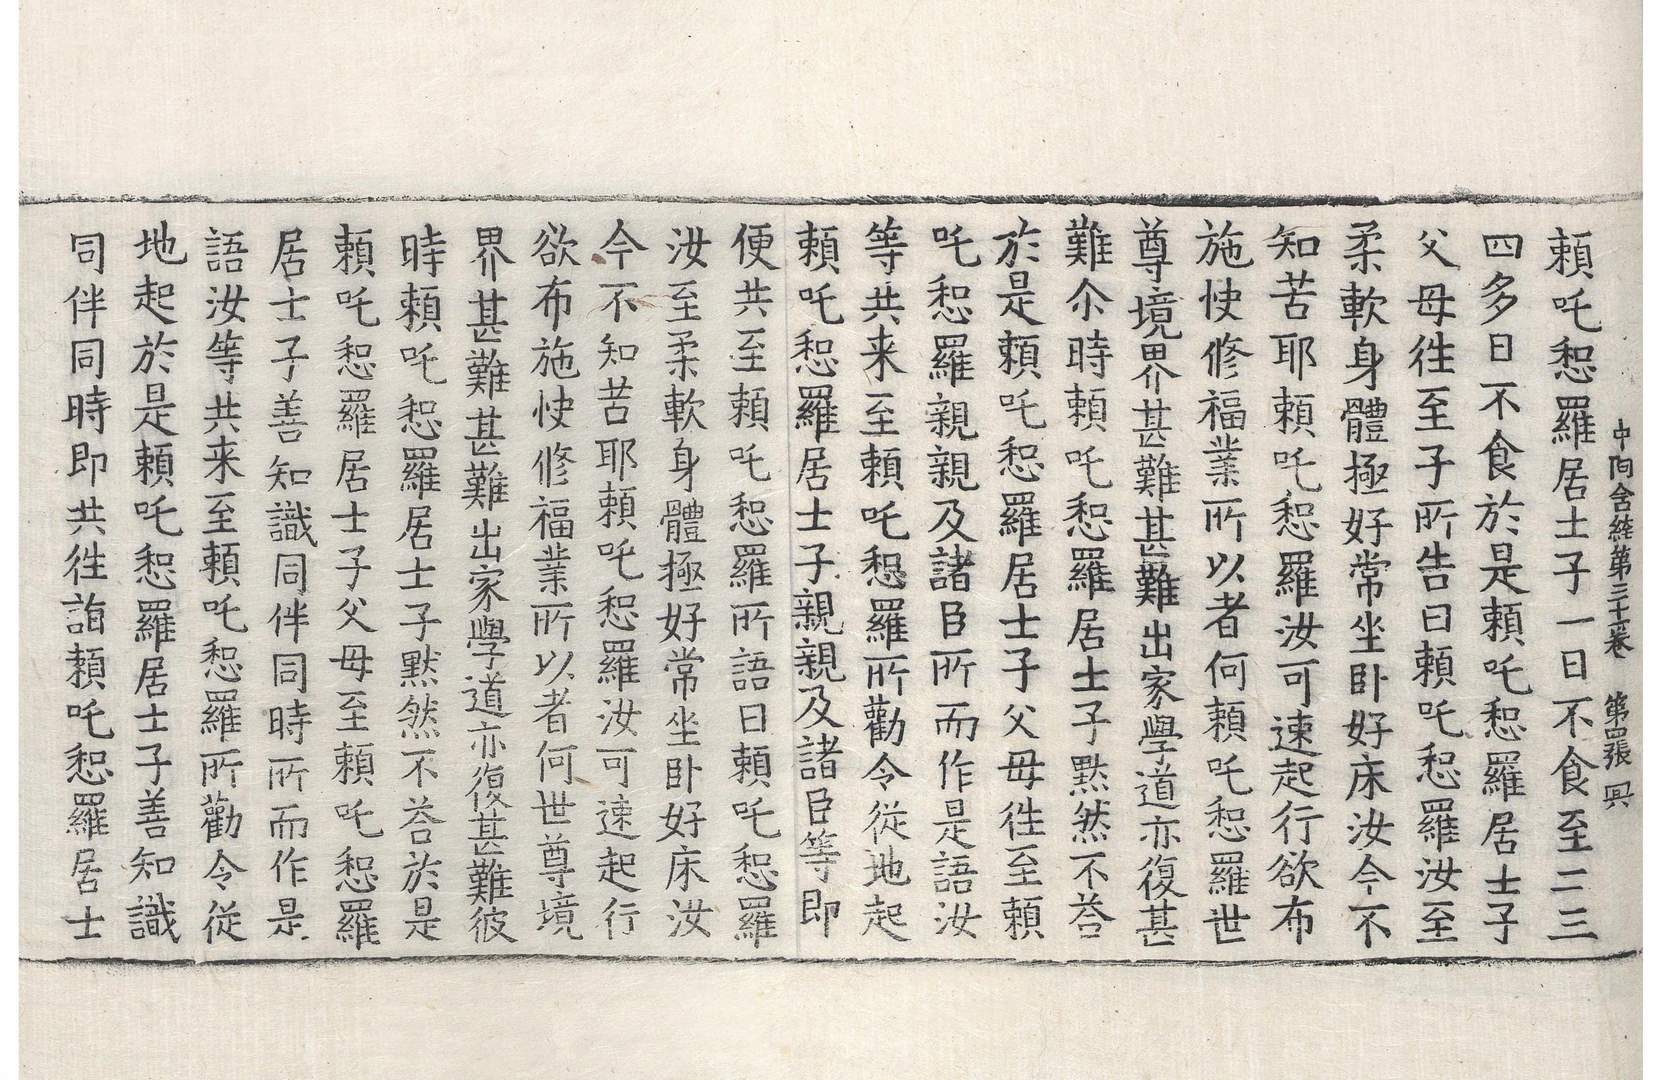 中阿含経第三十一卷 第四張 興
頼吒惒羅居士子一日不食至二三
四多日不食於是頼吒惒羅居士子
父母徃至子所告曰頼吒惒羅汝至
柔軟身體極好常坐卧好床汝今不
知苦耶頼吒惒羅汝可速起行欲布
施快修福業所以者何頼吒惒羅世
尊境界甚難甚難出家學道亦復甚
難尒時頼吒惒羅居士子黙然不荅
於是頼吒惒羅居士子父母徃至頼
吒惒羅親親及諸臣所而作是語汝
等共来至頼吒惒羅所勸令從地起
頼吒惒羅居士子親親及諸臣等即
便共至頼吒惒羅所語曰頼吒惒羅
汝至柔軟身體極好常坐卧好床汝
今不知苦耶頼吒惒羅汝可速起行
欲布施快修福業所以者何世尊境
界甚難甚難出家學道亦復甚難彼
時頼吒惒羅居士子黙然不荅於是
頼吒惒羅居士子父母至頼吒惒羅
居士子善知識同伴同時所而作是
語汝等共来至頼吒惒羅所勸令從
地起於是頼吒惒羅居士子善知識
同伴同時即共徃詣頼吒惒羅居士